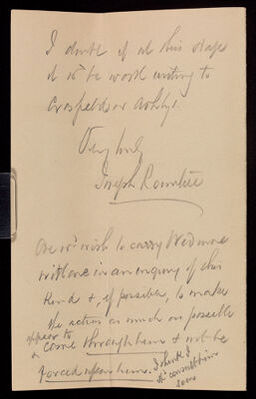 I doubt if at this stage
it wd be worth writing to
Crosfields or Ashby.
Very truly
Joseph Rowntree
One wd wish to carry Wedmore
with one in an enquiry of this
kind &, if possible, to make
the action as much as possible
appear to
& come through him & not be
forced upon him. I think I
sd consult him
soon